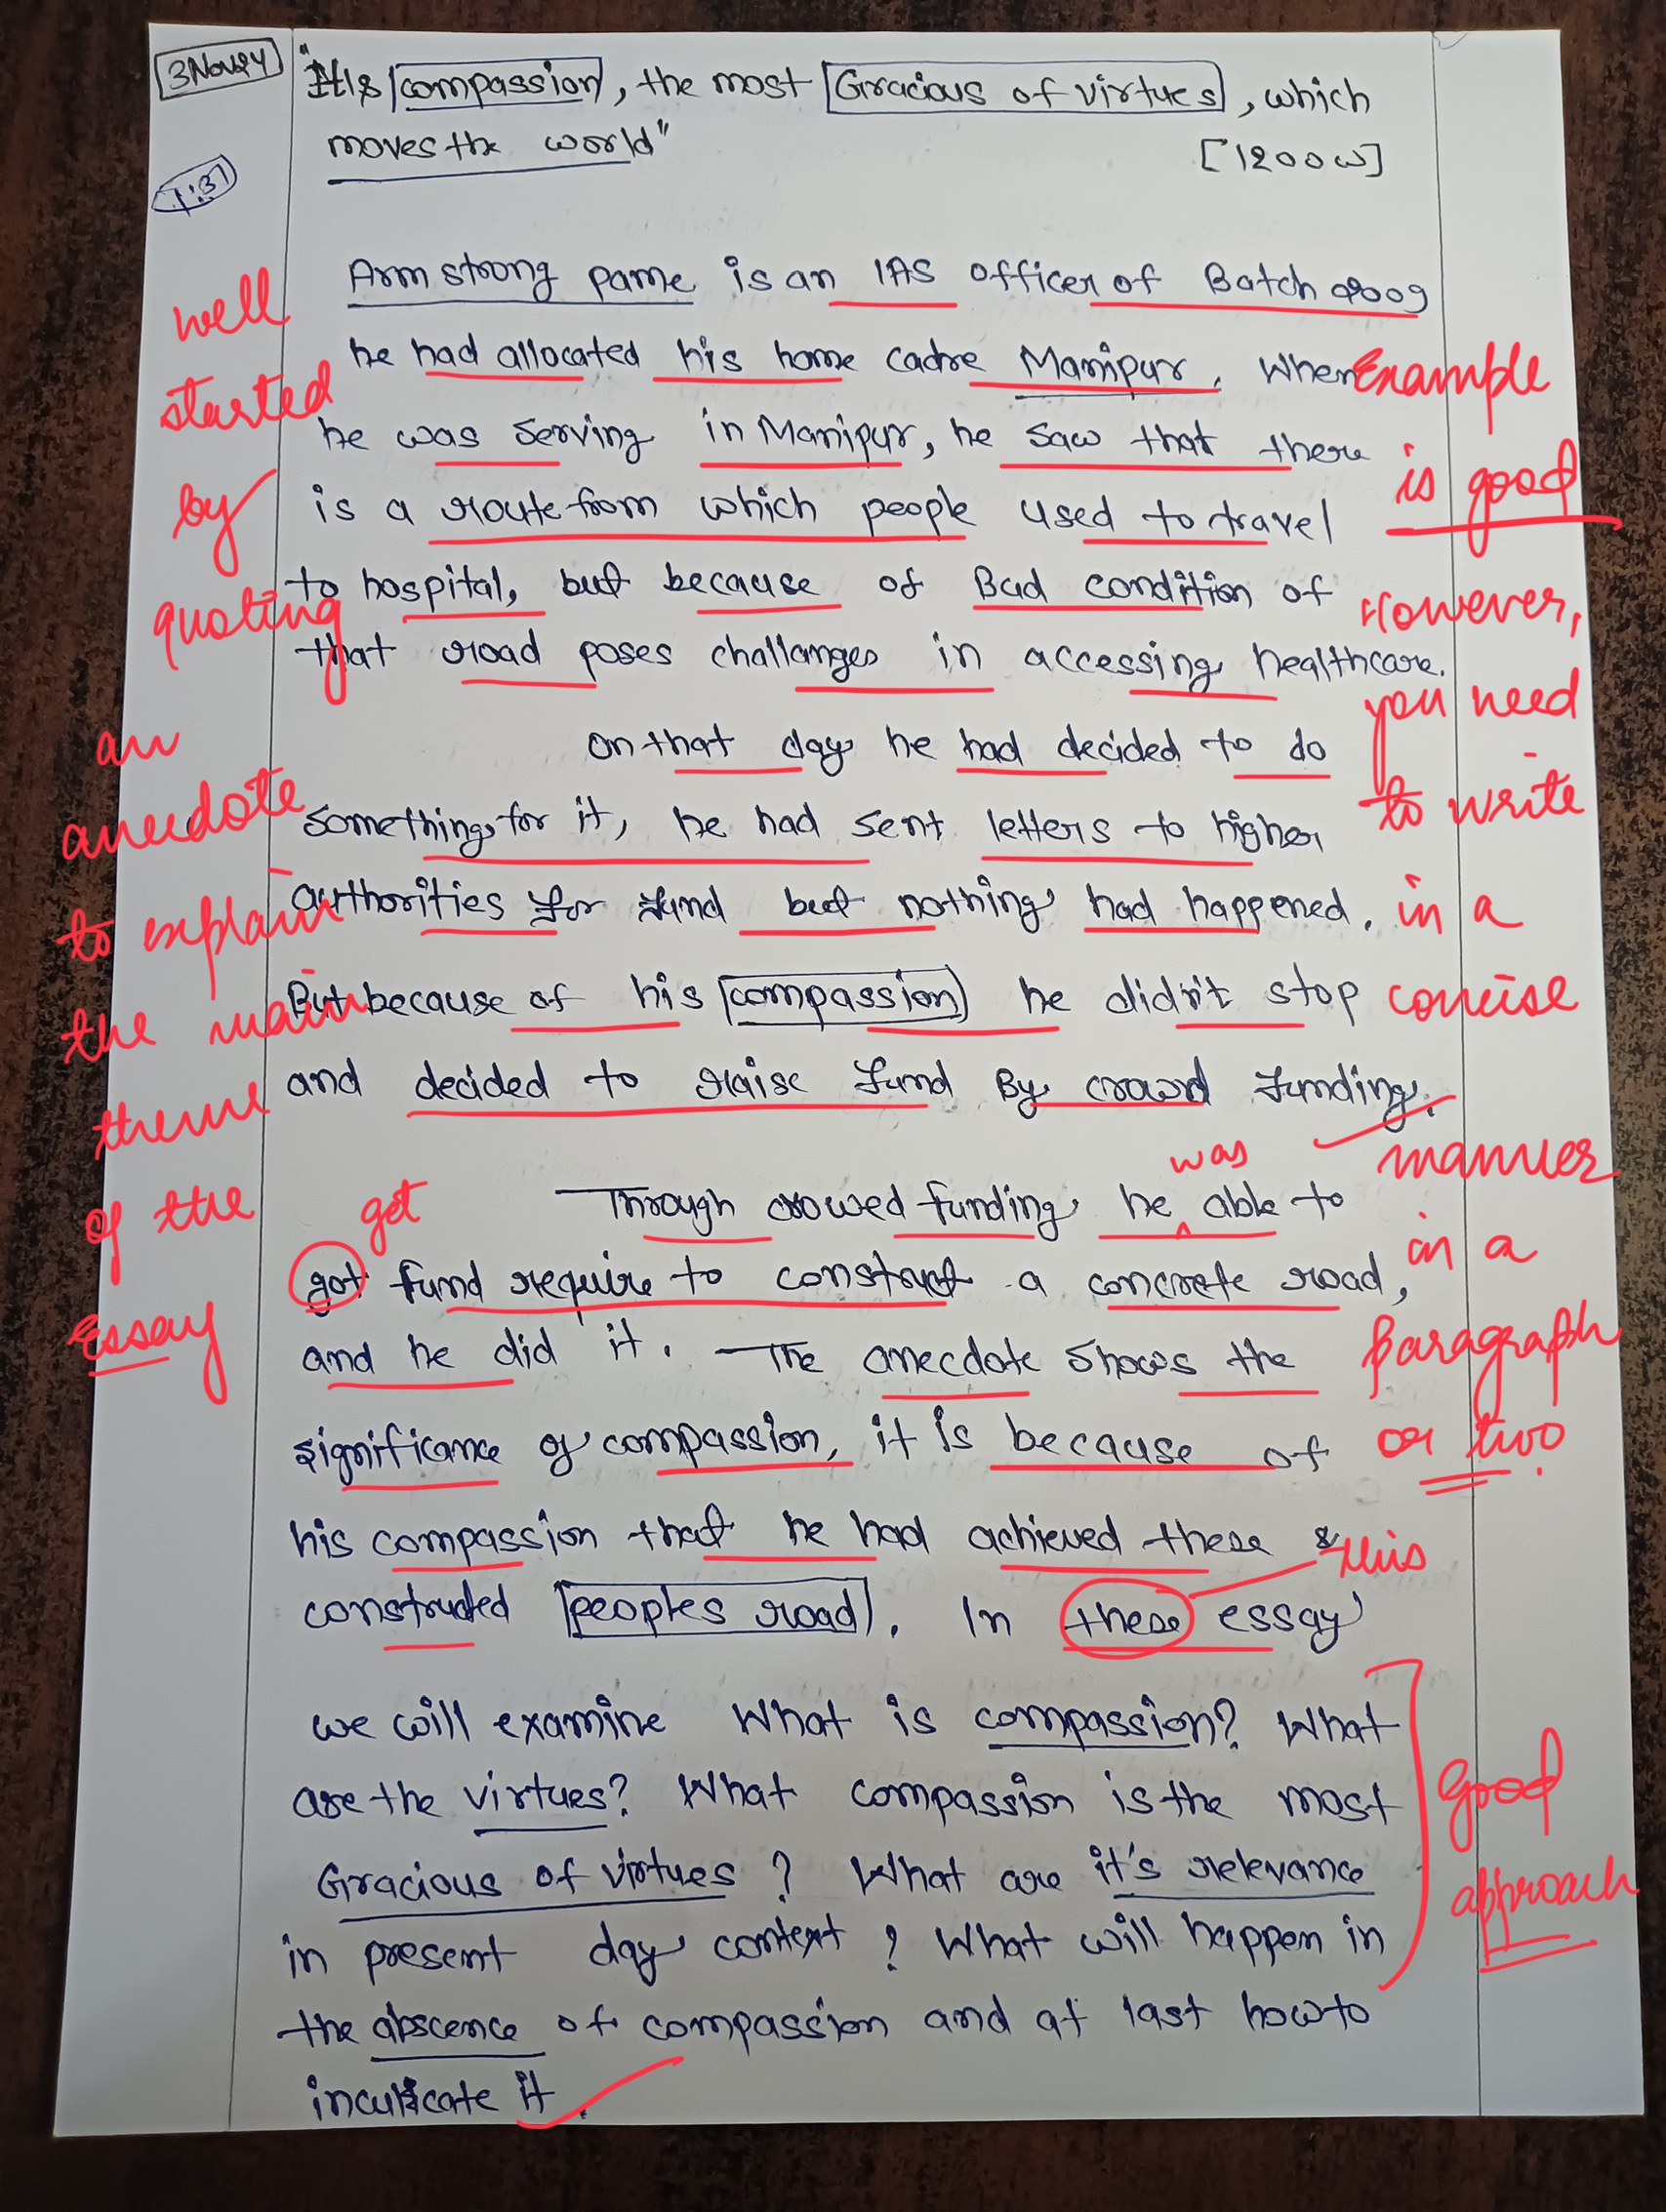 3 Nov 24
"It is compassion, the most Gracious of virtues, which
moves the world"
[1200 W]
Armstrong pame is an IAS officer of Batch 2009
he had allocated his home cadre Manipur. When
he was serving in Manipur, he saw that there
is a route from which people used to travel
to hospital, but because of Bad condition of
that road poses challanges in accessing healthcare.
on that day he had decided to do
something for it, he had sent letters to higher
authorities for fund but nothing had happened.
But because of his compassion he didn't stop
and decided to raise fund By crowd funding.
Through crowed funding he was able to
got get fund require to construct a concrete road,
and he did it. The anecdote shows the
significance of compassion, it is because of
his compassion that he had achieved these &
constructed peoples road. In these this essay
we will examine What is compassion? What
are the virtues? What compassion is the most
Gracious of virtues? What are it's relevance
in present day context? What will happen in
the abscence of compassion and at last how to
inculcate it.
well
started
by
quoting
an
anecdote
to explain
the main
theme
of the
Essay
Example
is good
However,
you need
to write
in a
concise
manner
in a
paragraph
or two
Good
approach